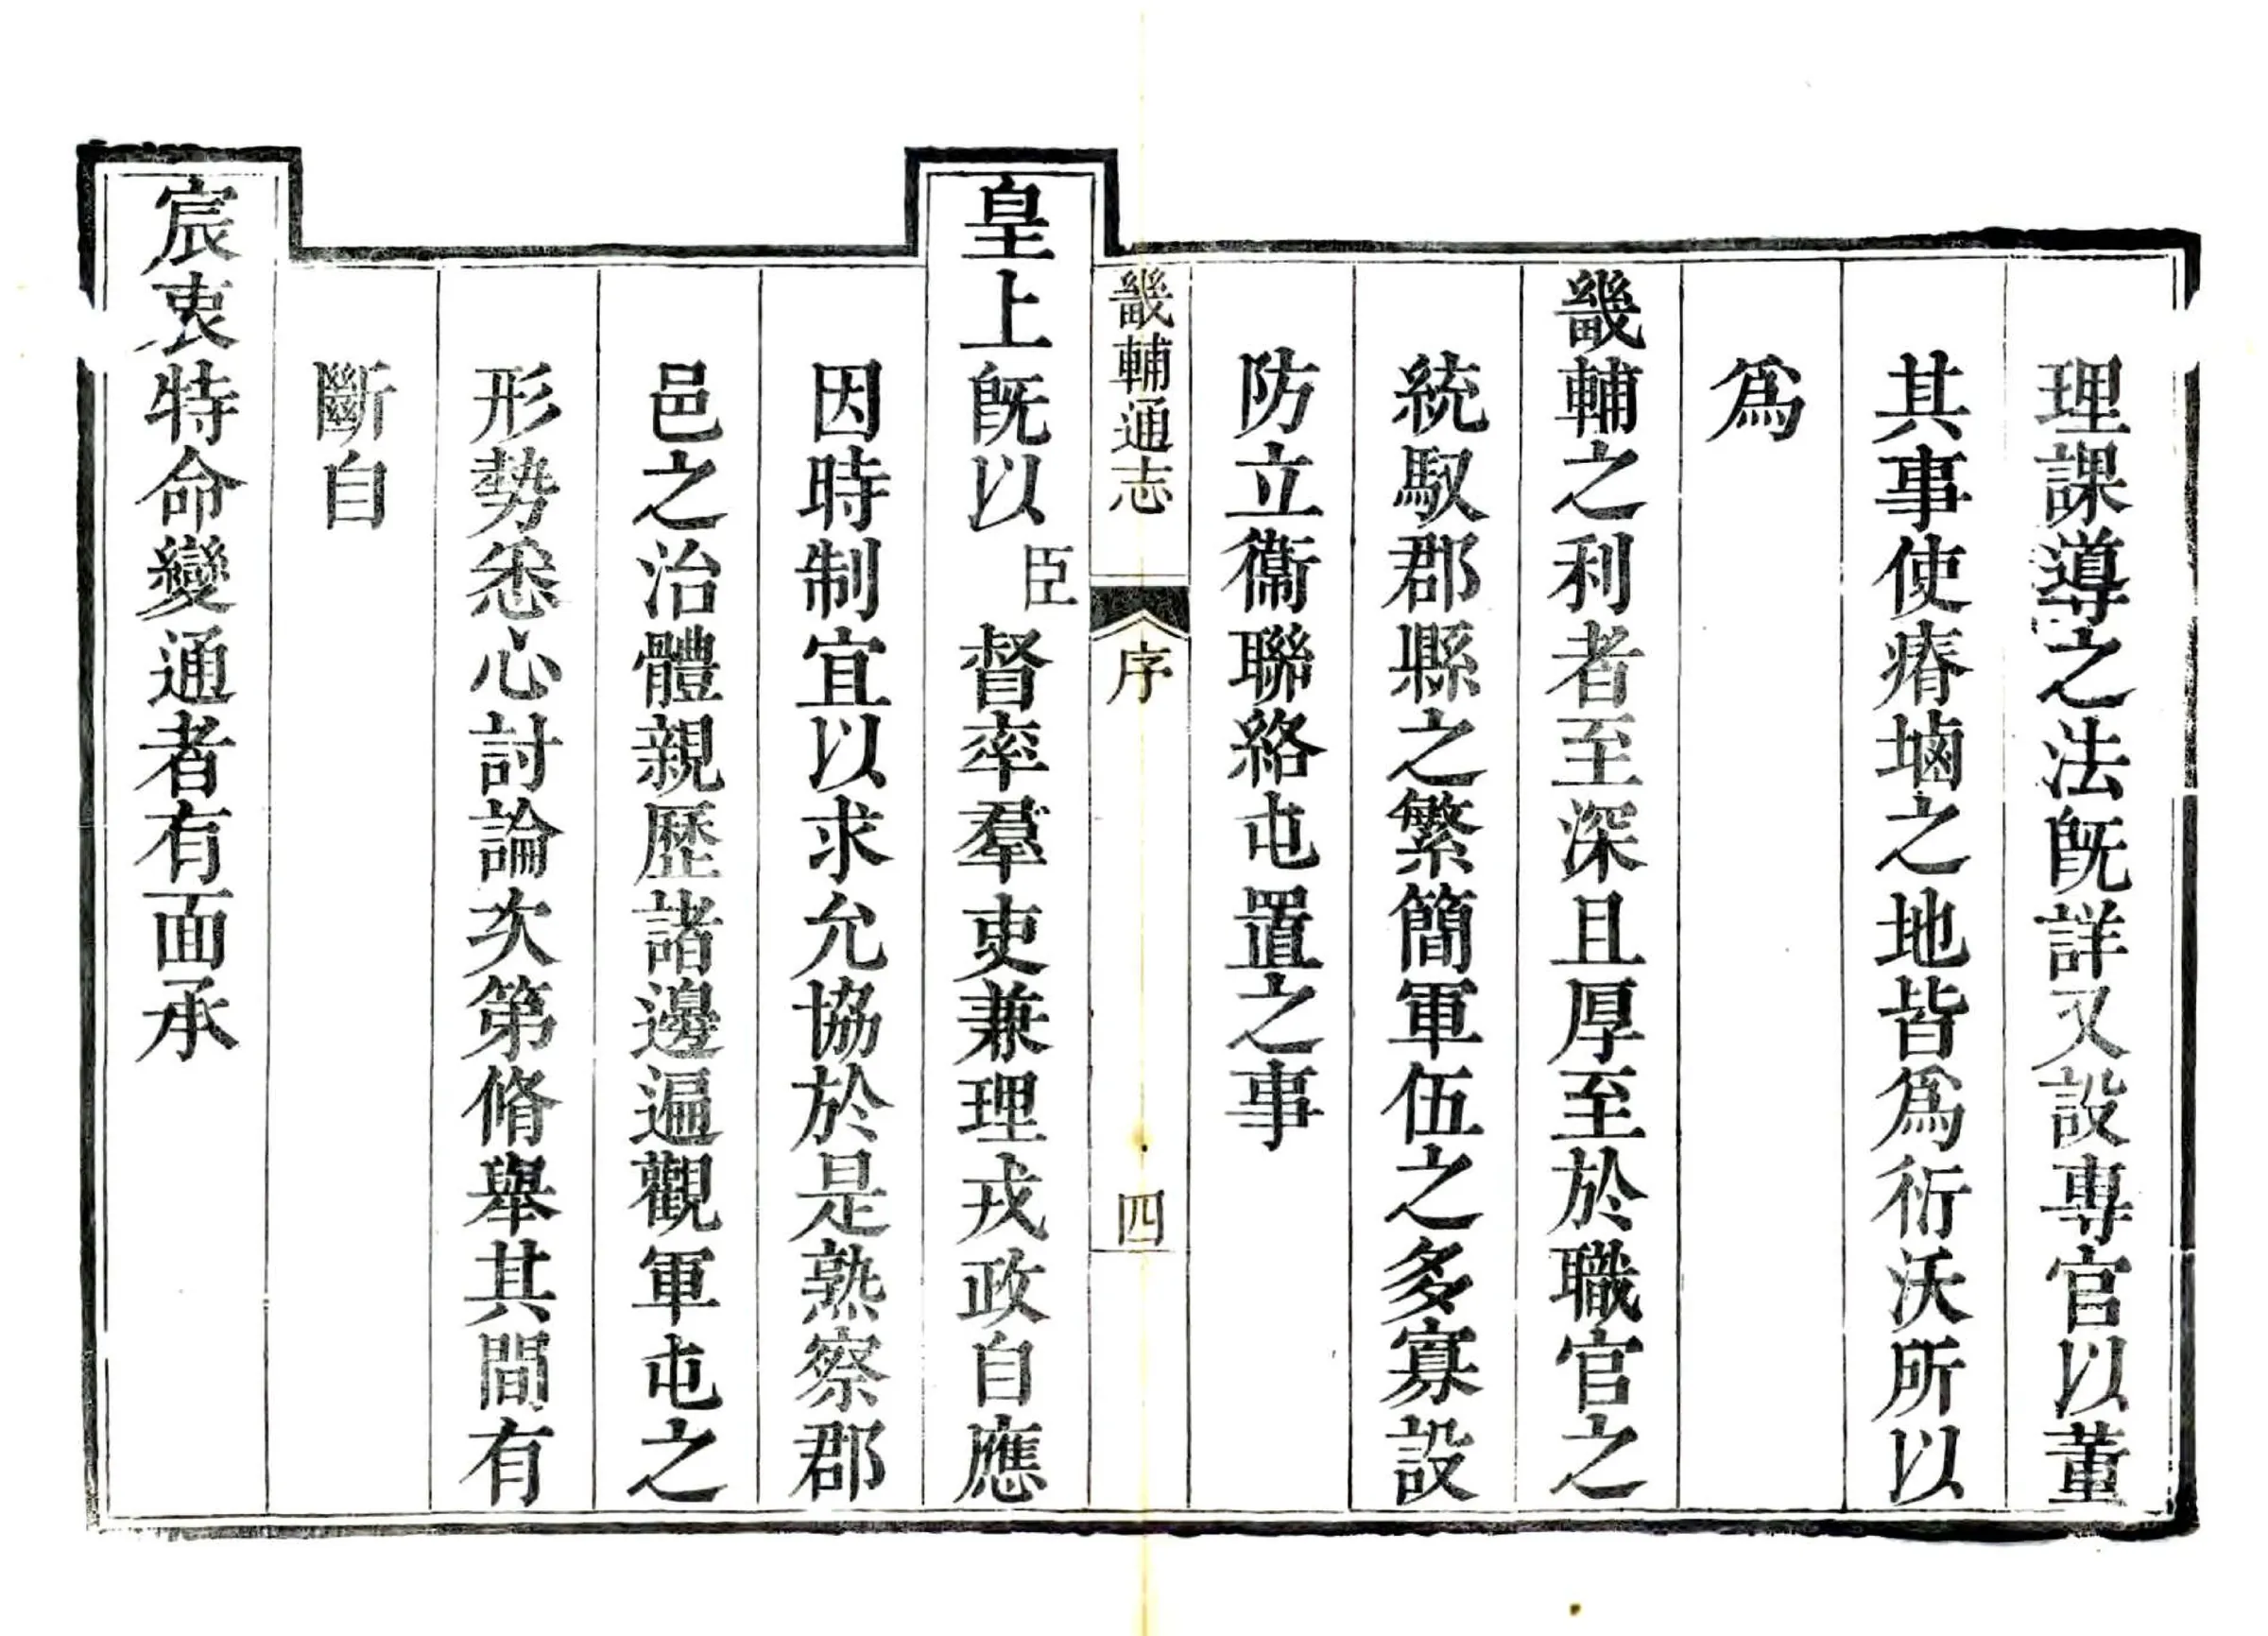 理課導之法旣詳又設專官以董
其事使瘠塉之地皆爲衍沃所以
爲
畿輔之利者至深且厚至於職官之
統馭郡縣之繁簡軍伍之多寡設
防立衞聯絡屯置之事
畿輔通志
序
四
皇上旣以臣督率羣吏兼理戎政自應
因時制宜以求允協於是熟察郡
邑之治體親歷諸邊遍觀軍屯之
形勢悉心討論次第脩舉其間有
斷自
宸衷特命變通者有面承